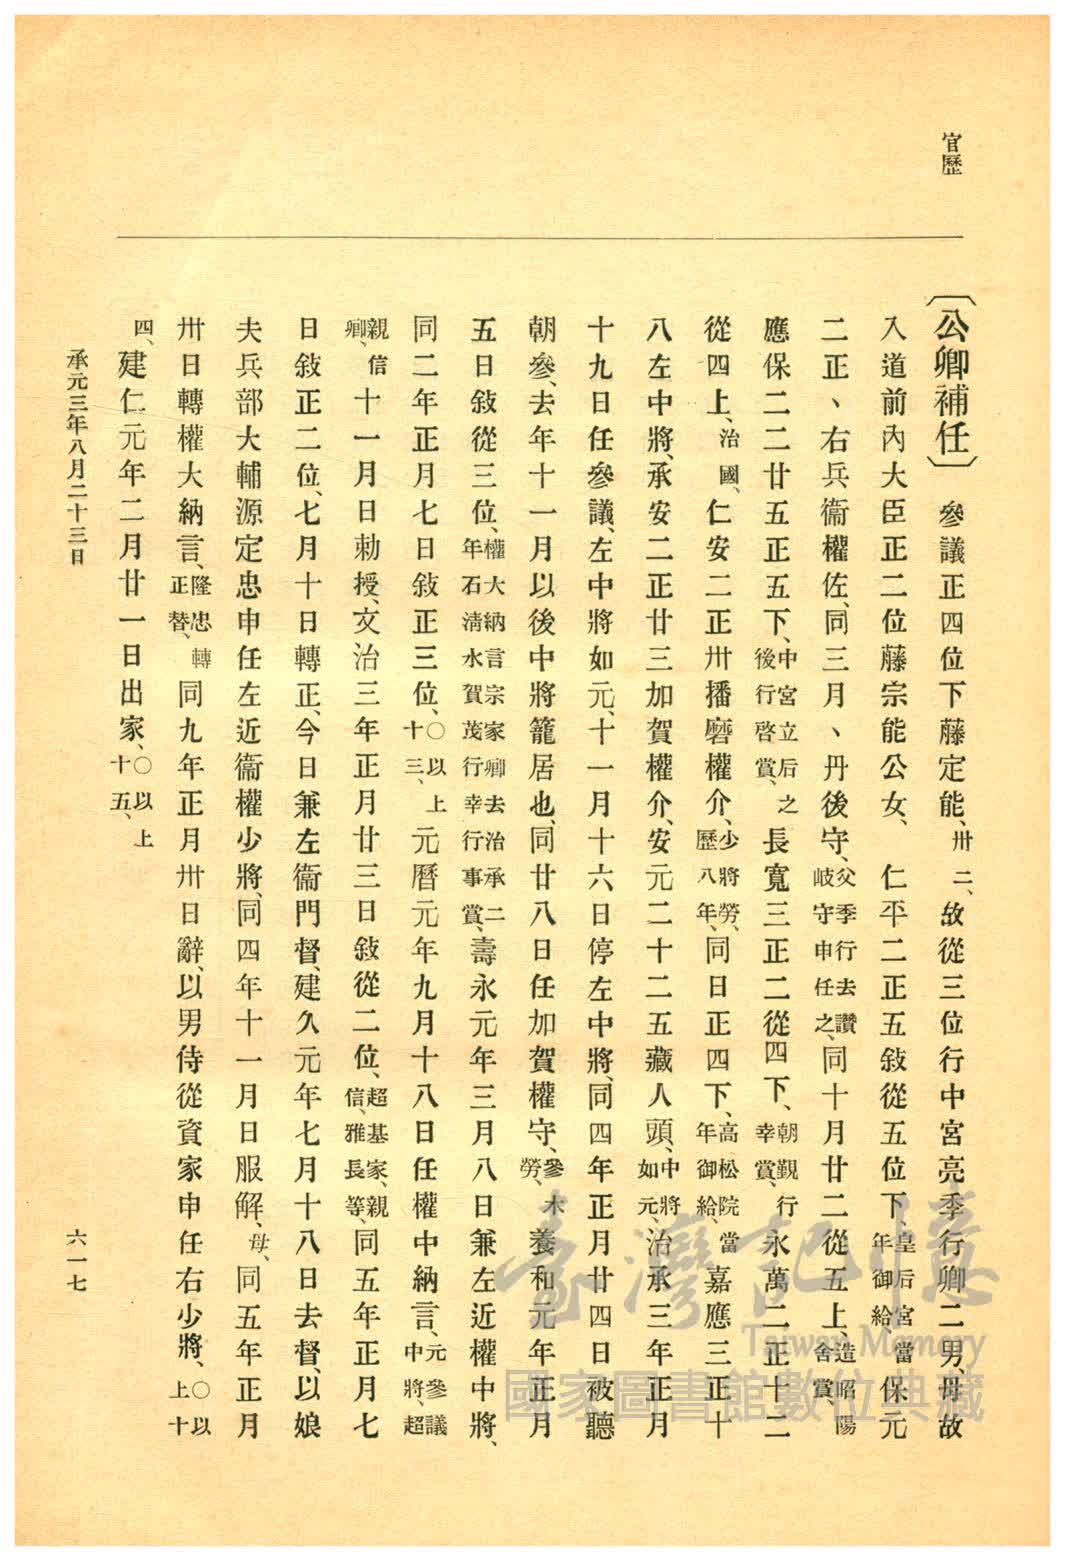 官歷
〔公卿補任〕 參議正四位下藤定能、卅二、故從三位行中宮亮季行卿二男、母故
入道前內大臣正二位藤宗能公女、 仁平二正五敍從五位下、皇后宮當年御給、保元
二正、右兵衞權佐、同三月、丹後守、父季行去讚岐守申任之、同十月廿二從五上、造昭陽舍賞、
應保二二廿五正五下、中宮立后之後行啓賞、長寬三正二從四下、朝覲行幸賞、永萬二正十二
從四上、治國、仁安二正卅播磨權介、少將勞、歷八年、同日正四下、高松院當年御給、嘉應三正十
八左中將、承安二正廿三加賀權介、安元二十二五藏人頭、中將如元、治承三年正月
十九日任參議、左中將如元、十一月十六日停左中將、同四年正月廿四日被聽
朝參、去年十一月以後中將籠居也、同廿八日任加賀權守、參木勞、養和元年正月
五日敍從三位、權大納言宗家卿去治承二年石淸水賀茂行幸行事賞、壽永元年三月八日兼左近權中將、
同二年正月七日敍正三位、〇以上十三、元曆元年九月十八日任權中納言、元參議中將、超
親信卿、十一月日勅授、文治三年正月廿三日敍從二位、超基家、親信、雅長等、同五年正月七
日敍正二位、七月十日轉正、今日兼左衞門督、建久元年七月十八日去督、以娘
夫兵部大輔源定忠申任左近衞權少將、同四年十一月日服解、母、同五年正月
卅日轉權大納言、隆忠轉正替、同九年正月卅日辭、以男侍從資家申任右少將、〇以上十
四、建仁元年二月廿一日出家、〇以上十五、
承元三年八月二十三日
六一七
臺灣記憶
Taiwan Memory
國家圖書館數位典藏